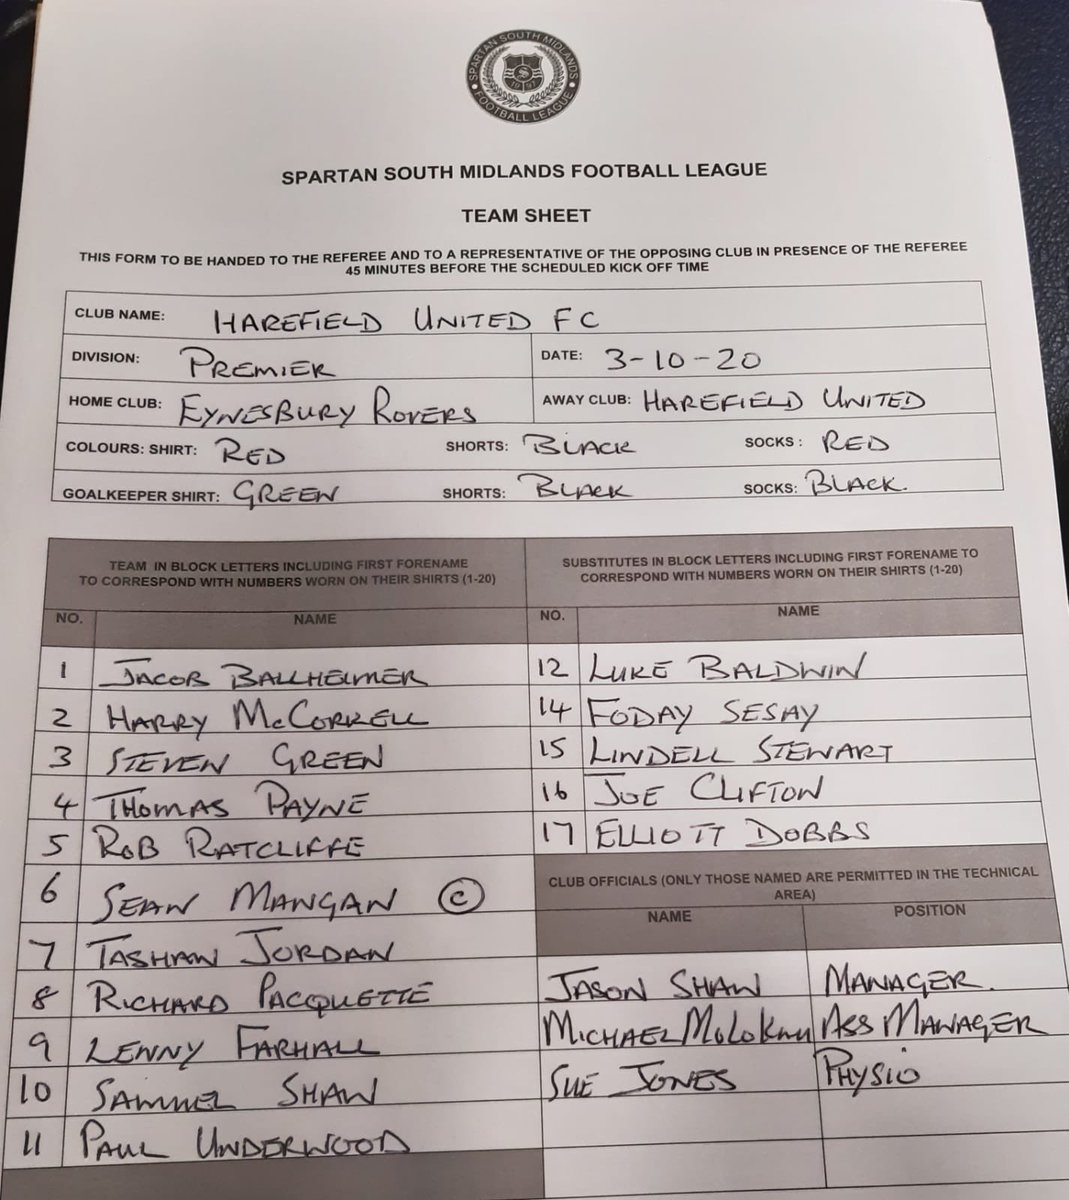 SPARTAN SOUTH MIDLANDS
FOOTBALL LEAGUE
SPARTAN SOUTH MIDLANDS FOOTBALL LEAGUE
TEAM SHEET
THIS FORM TO BE HANDED TO THE REFEREE AND TO A REPRESENTATIVE OF THE OPPOSING CLUB IN PRESENCE OF THE REFEREE
45 MINUTES BEFORE THE SCHEDULED KICK OFF TIME
CLUB NAME: HAREFIELD UNITED FC
DIVISION: PREMIER DATE: 3-10-20
HOME CLUB: EYNESBURY ROVERS AWAY CLUB: HAREFIELD UNITED
COLOURS: SHIRT: RED SHORTS: BLACK SOCKS: RED
GOALKEEPER SHIRT: GREEN SHORTS: BLACK SOCKS: BLACK.
TEAM IN BLOCK LETTERS INCLUDING FIRST FORENAME
TO CORRESPOND WITH NUMBERS WORN ON THEIR SHIRTS (1-20)
NO. NAME
1 JACOB BALLHEIMER
2 HARRY McCORKELL
3 STEVEN GREEN
4 THOMAS PAYNE
5 ROB RATCLIFFE
6 SEAN MANGAN ©
7 TASHAN JORDAN
8 RICHARD PACQUETTE
9 LENNY FARHALL
10 SAMUEL SHAW
11 PAUL UNDERWOOD
SUBSTITUTES IN BLOCK LETTERS INCLUDING FIRST FORENAME TO
CORRESPOND WITH NUMBERS WORN ON THEIR SHIRTS (1-20)
NO. NAME
12 LUKE BALDWIN
14 FODAY SESAY
15 LINDELL STEWART
16 JOE CLIFTON
17 ELLIOTT DOBBS
CLUB OFFICIALS (ONLY THOSE NAMED ARE PERMITTED IN THE TECHNICAL
AREA)
NAME POSITION
JASON SHAW MANAGER.
MICHAEL ASS MANAGER
SUE JONES PHYSIO